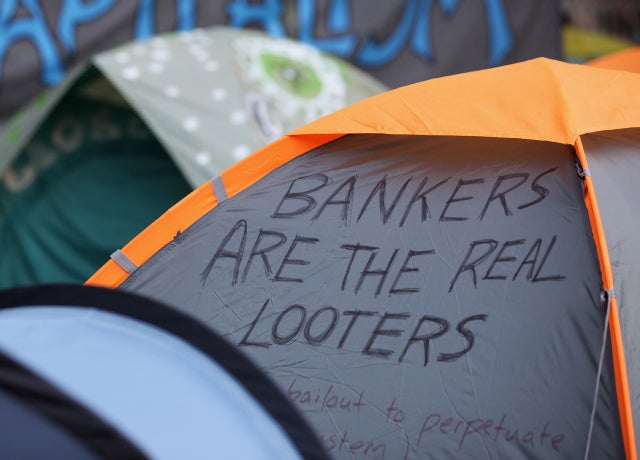 CAPITALISM
BANKERS
ARE THE REAL
LOOTERS
bailout to perpetuate
)